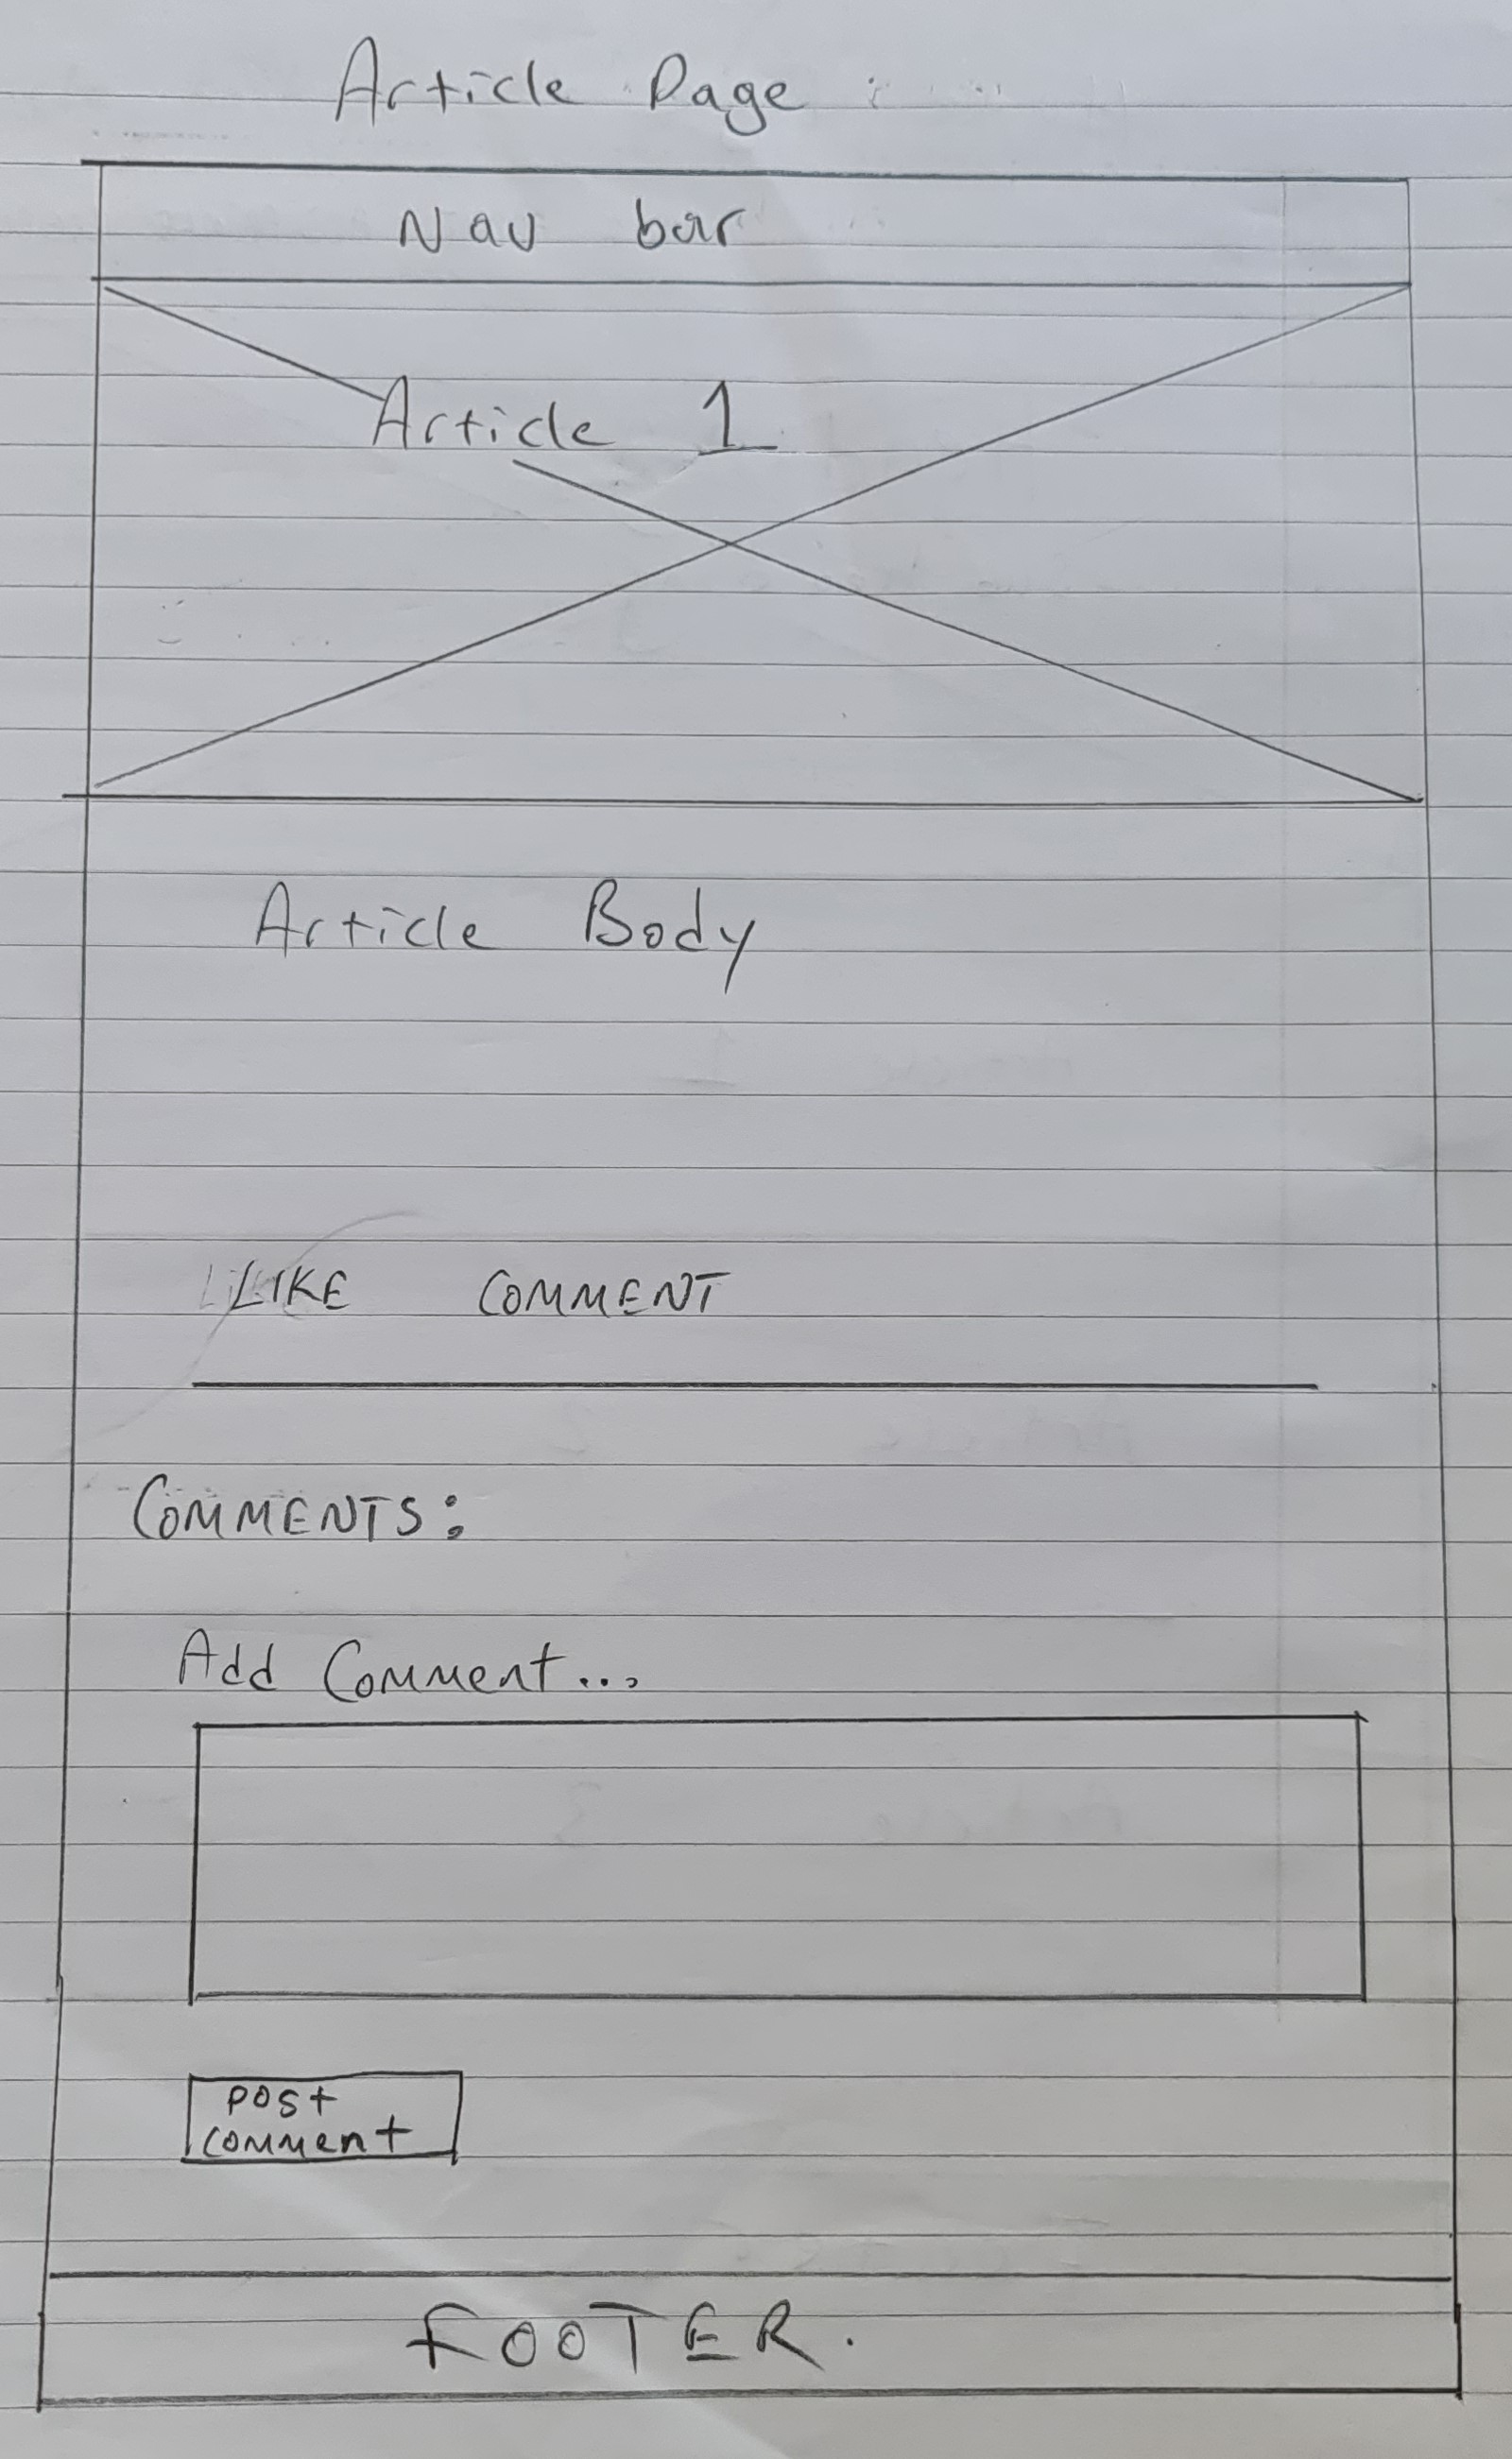 Article Page
Nav bar
Article 1
Article Body
LIKE COMMENT
COMMENTS:
Add Comment...
Post
comment
FOOTER.